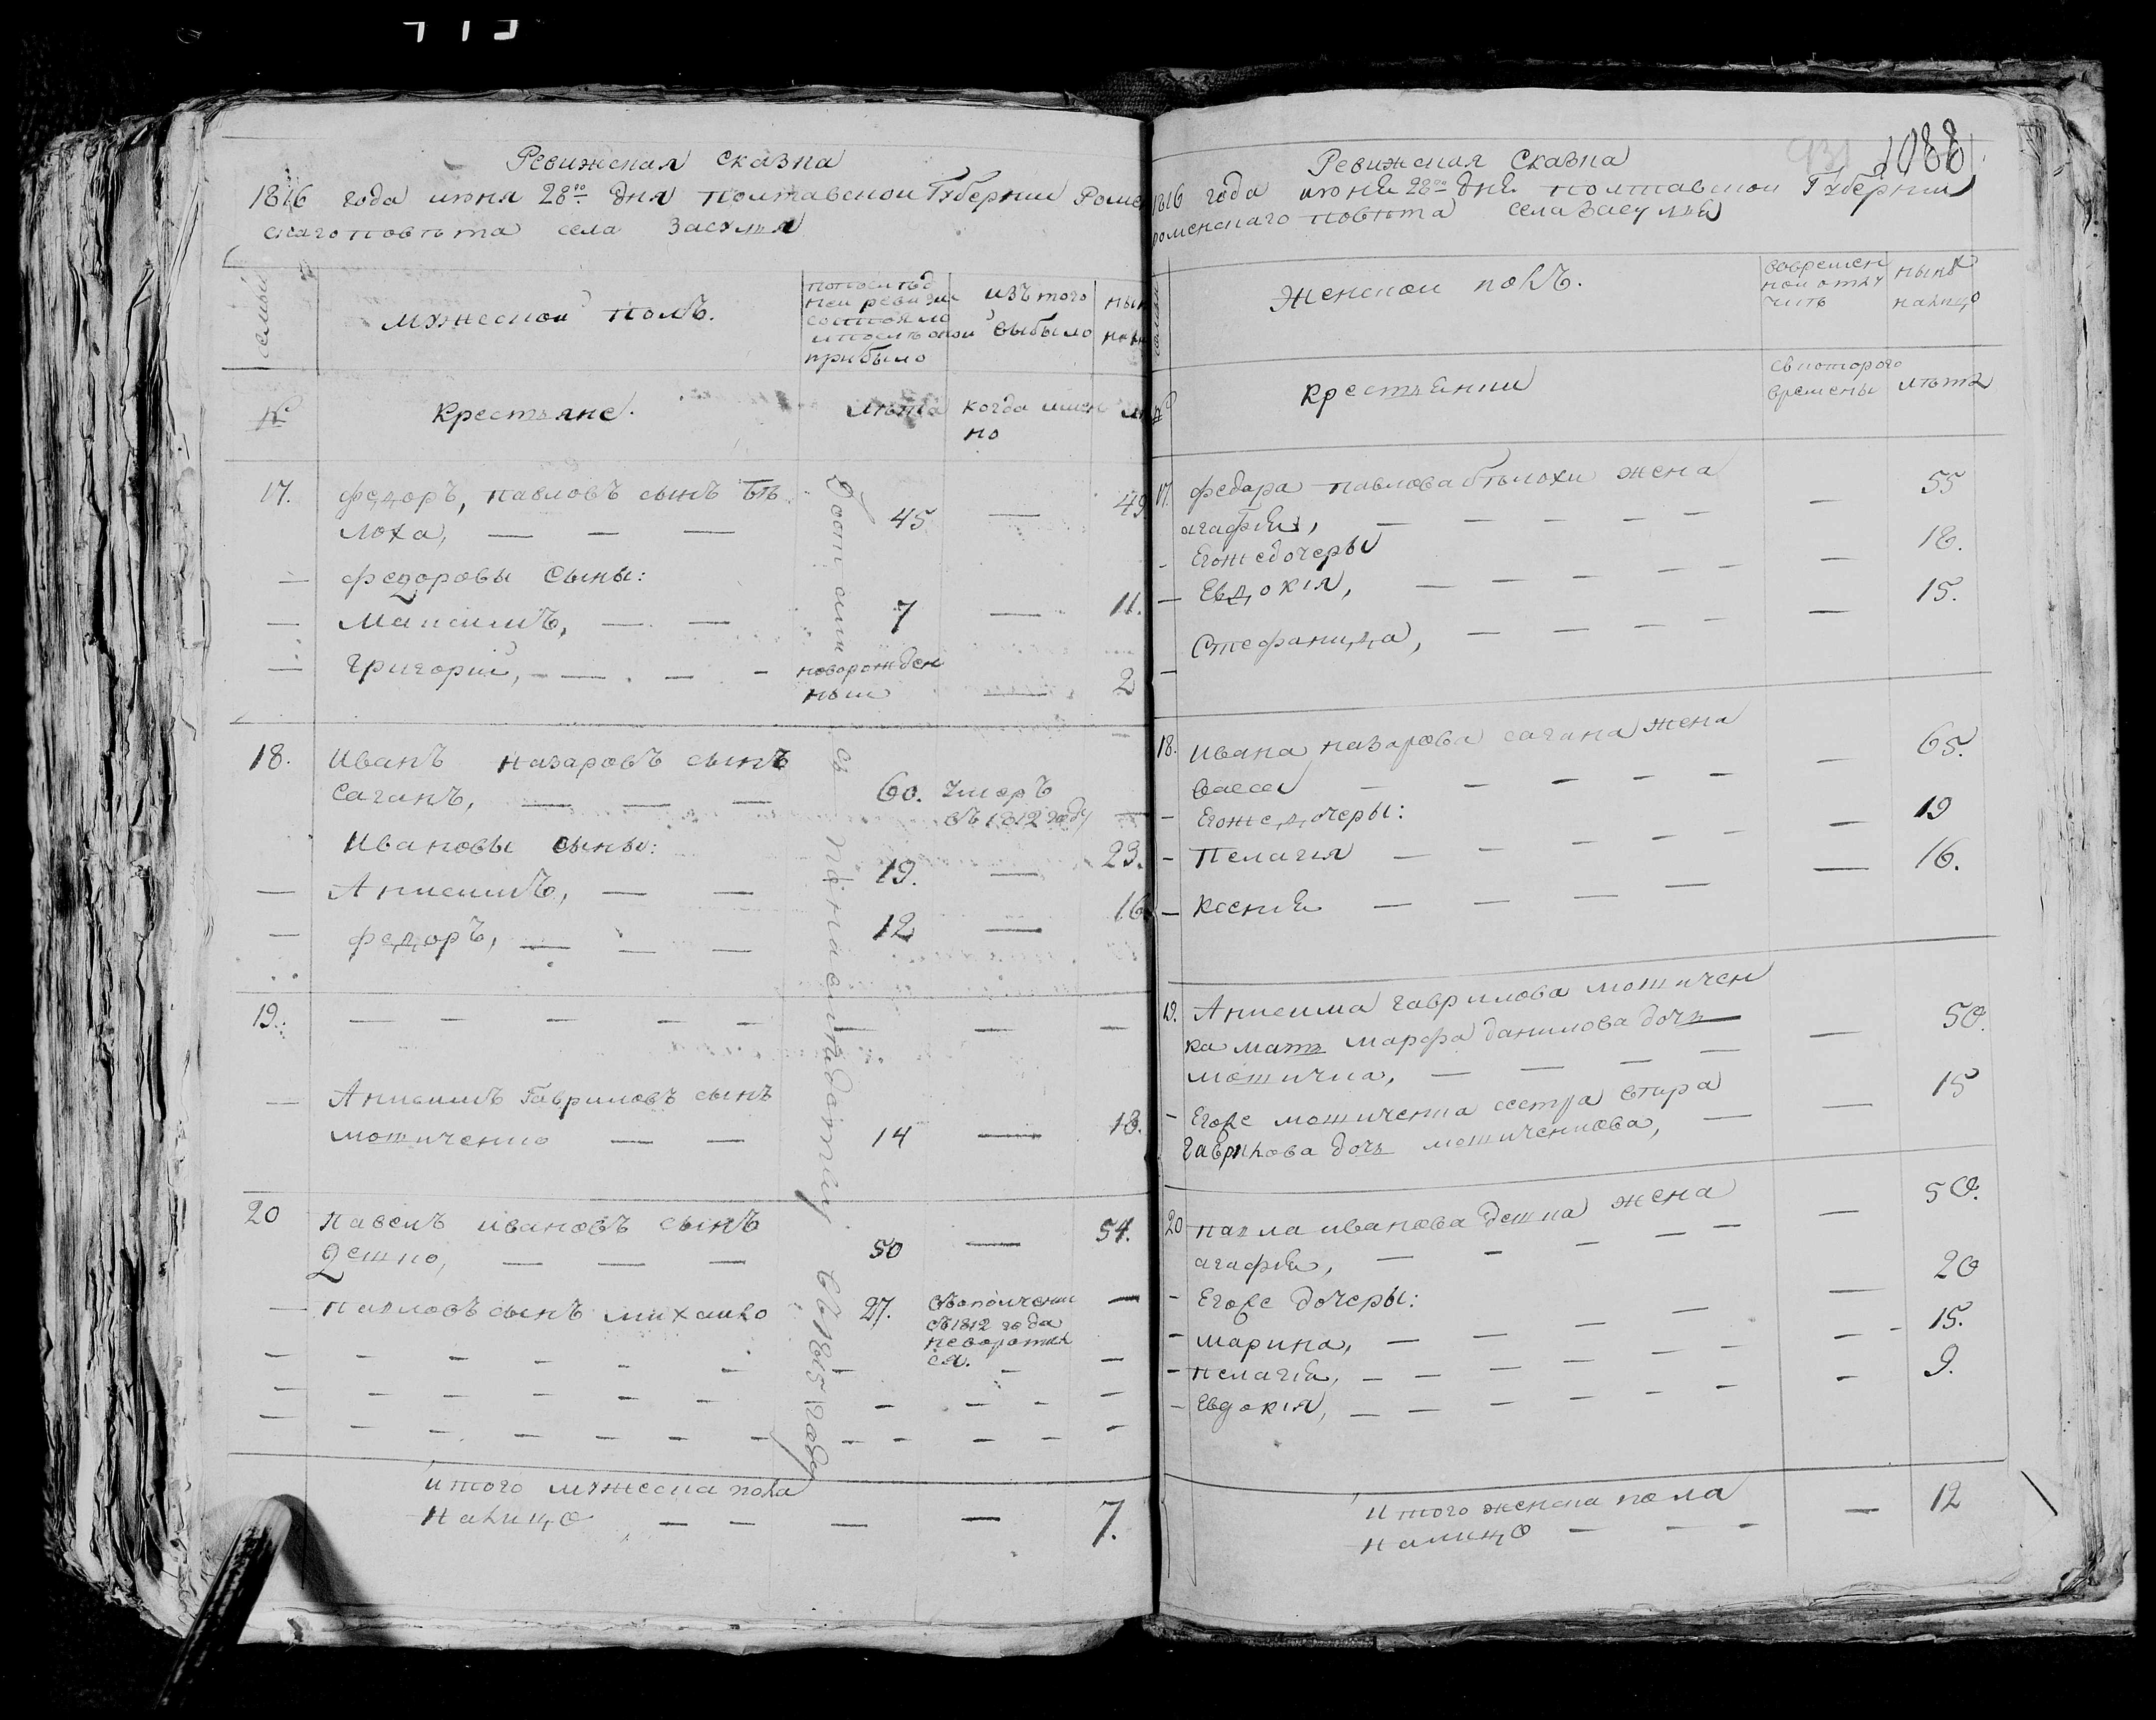 Ревижская сказка
1816 года июня 28го дня Полтавской Губернии Ромен
скаго повѣта села Засулья
семьи
мужеской полъ.
по послѣд
ней ревизіи
состояло
и послѣ оной
прибыло
изъ того
выбыло
№
Крестьяне.
лѣта
когда имен
но
17.
федоръ, павловъ сынъ бѣ
лоха,
45
49
федоровы сыны:
Максимъ,
7
11.
Григорий,
новорожден
ный
2
18.
Иванъ назаровъ сынъ
саганъ,
60.
умеръ
въ 1812 году
Ивановы сыны:
Анисимъ,
19.
23.
федоръ,
12
16
19.
Анисимъ Гавриловъ сынъ
мотиченко
14
18.
20
павелъ ивановъ сынъ
Дешко,
50
54.
павловъ сынъ михайло
27.
въ ополчении
съ 1812 года
не воротил
ся.
въ 1815 году
итого мужеска пола
налицо
7.
1088
Ревижская Сказка
1816 года июня 28го дня полтавской Губернии
роменскаго повѣта села Засулья
женской полъ.
во времен
ной отлу
чкѣ
нынѣ
налицо
№
крестьянки
съ которого
времены
лѣта
17.
федора павлова бѣлохи жена
агафья,
55
Егоже дочеры
Евдокія,
18.
Стефанида,
15.
18.
ивана назарова сагана жена
васса
65.
Егоже дочеры:
Пелагія
19
ксения
16.
19.
Анисима гаврилова мотичен
ка мать марфа данилова дочь
мотичка,
50.
Егоже мотиченка сестра
гаврилова дочь мотиченкова,
15
20
павла иванова дешка жена
агафья,
50.
Егоже дочеры:
марина,
20
пелагія,
15.
Евдокія,
9.
итого женска пола
налицо
12